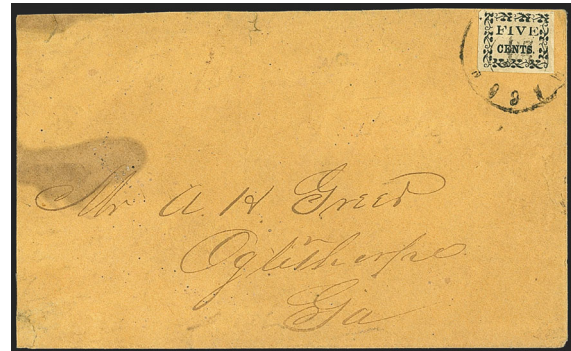 FIVE
CENTS.
Mr A. H. Greer
Oglethorpe
Ga